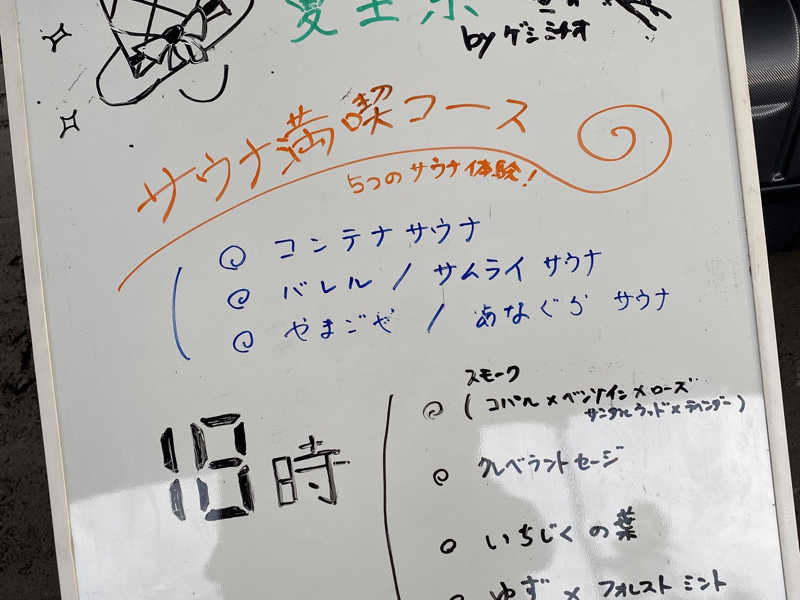 夏至祭
by ゲシミナオ
サウナ満喫コース
5つのサウナ体験!
コンテナサウナ
バレル / サムライサウナ
やまごや / あなぐらサウナ
スモーク
(コパル×ベンゾイン×ローズ
サンダルウッド×ティンダー)
クレベラントセージ
いちじくの葉
ゆず × フォレストミント
時